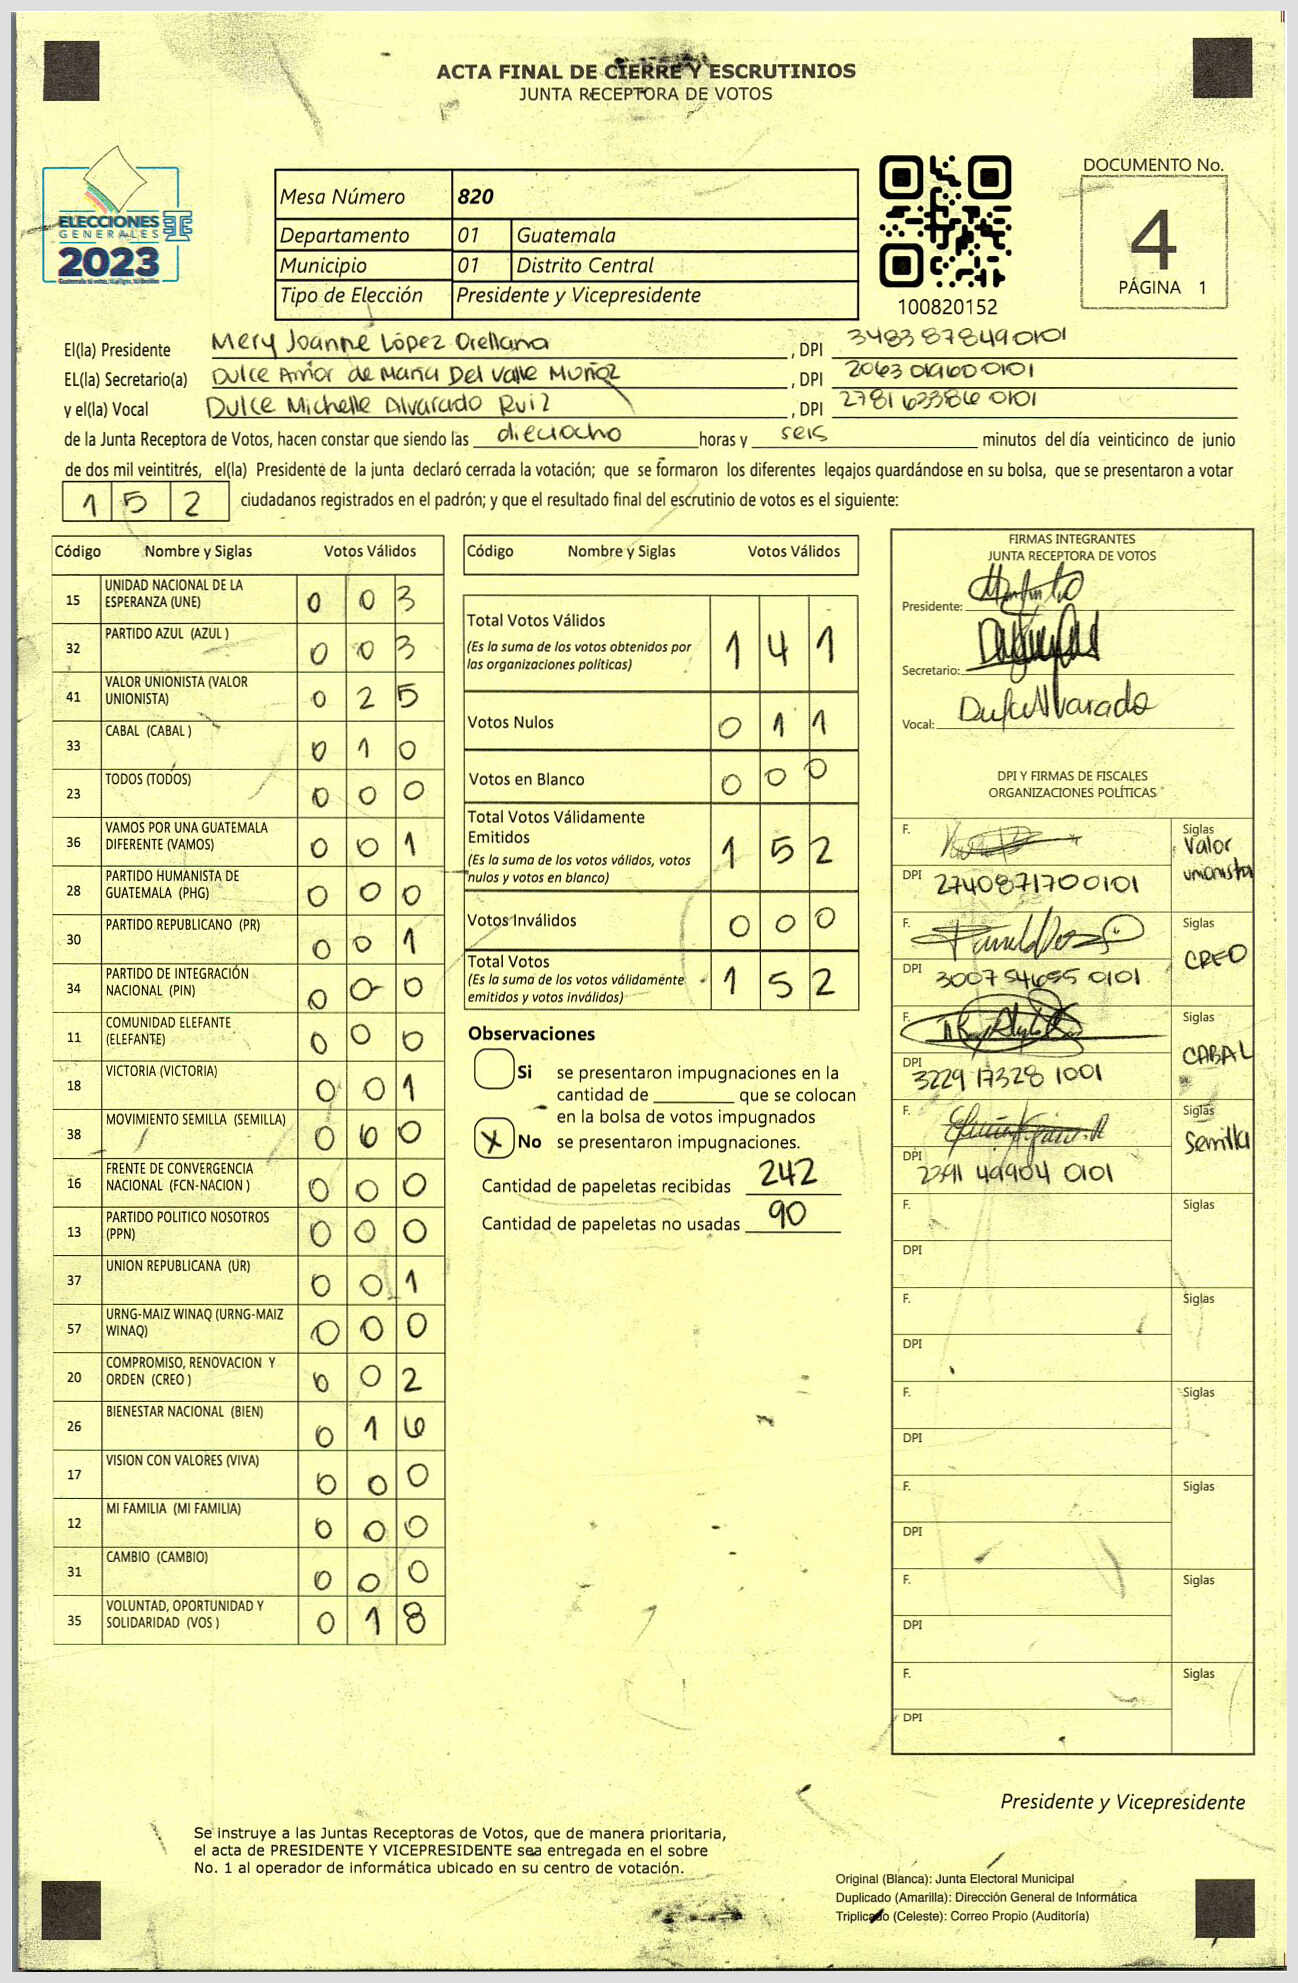 ACTA FINAL DE CIERRE Y ESCRUTINIOS
JUNTA RECEPTORA DE VOTOS
ELECCIONES
GENERALES
2023
Mesa Número 820
Departamento 01 Guatemala
Municipio 01 Distrito Central
Tipo de Elección Presidente y Vicepresidente
100820152
DOCUMENTO No.
4
PÁGINA 1
El(la) Presidente Mery Joanne López Orellana, DPI 3483878490101
EL(la) Secretario(a) Dulce Amor de María Del Valle Muñoz, DPI 2063019600101
y el(la) Vocal Dulce Michelle Alvarado Ruiz, DPI 2781623860101
de la Junta Receptora de Votos, hacen constar que siendo las dieciocho horas y seis minutos del día veinticinco de junio
de dos mil veintitrés, el(la) Presidente de la junta declaró cerrada la votación; que se formaron los diferentes legajos guardándose en su bolsa, que se presentaron a votar
152 ciudadanos registrados en el padrón; y que el resultado final del escrutinio de votos es el siguiente:
Código Nombre y Siglas Votos Válidos
15 UNIDAD NACIONAL DE LA ESPERANZA (UNE) 0 0 3
32 PARTIDO AZUL (AZUL ) 0 0 3
41 VALOR UNIONISTA (VALOR UNIONISTA) 0 2 5
33 CABAL (CABAL ) 0 1 0
23 TODOS (TODOS) 0 0 0
36 VAMOS POR UNA GUATEMALA DIFERENTE (VAMOS) 0 0 1
28 PARTIDO HUMANISTA DE GUATEMALA (PHG) 0 0 0
30 PARTIDO REPUBLICANO (PR) 0 0 1
34 PARTIDO DE INTEGRACIÓN NACIONAL (PIN) 0 0 0
11 COMUNIDAD ELEFANTE (ELEFANTE) 0 0 0
18 VICTORIA (VICTORIA) 0 0 1
38 MOVIMIENTO SEMILLA (SEMILLA) 0 6 0
16 FRENTE DE CONVERGENCIA NACIONAL (FCN-NACION ) 0 0 0
13 PARTIDO POLITICO NOSOTROS (PPN) 0 0 0
37 UNION REPUBLICANA (UR) 0 0 1
57 URNG-MAIZ WINAQ (URNG-MAIZ WINAQ) 0 0 0
20 COMPROMISO, RENOVACION Y ORDEN (CREO ) 0 0 2
26 BIENESTAR NACIONAL (BIEN) 0 1 6
17 VISION CON VALORES (VIVA) 0 0 0
12 MI FAMILIA (MI FAMILIA) 0 0 0
31 CAMBIO (CAMBIO) 0 0 0
35 VOLUNTAD, OPORTUNIDAD Y SOLIDARIDAD (VOS ) 0 1 8
Código Nombre y Siglas Votos Válidos
Total Votos Válidos 1 4 1
(Es la suma de los votos obtenidos por
las organizaciones políticas)
Votos Nulos 0 1 1
Votos en Blanco 0 0 0
Total Votos Válidamente
Emitidos 1 5 2
(Es la suma de los votos válidos, votos
nulos y votos en blanco)
Votos Inválidos 0 0 0
Total Votos 1 5 2
(Es la suma de los votos válidamente
emitidos y votos inválidos)
Observaciones
Si se presentaron impugnaciones en la
cantidad de ________ que se colocan
en la bolsa de votos impugnados
X No se presentaron impugnaciones.
Cantidad de papeletas recibidas 242
Cantidad de papeletas no usadas 90
FIRMAS INTEGRANTES
JUNTA RECEPTORA DE VOTOS
Presidente:
Secretario:
Vocal: Dulce Alvarado
DPI Y FIRMAS DE FISCALES
ORGANIZACIONES POLÍTICAS
F. Siglas Valor unionista
DPI 2740871700101
F. Siglas CREO
DPI 3007546550101
F. Siglas CABAL
DPI 3229173281001
F. Siglas Semilla
DPI 2391499040101
F. Siglas
DPI
F. Siglas
DPI
F. Siglas
DPI
F. Siglas
DPI
F. Siglas
DPI
F. Siglas
DPI
Presidente y Vicepresidente
Se instruye a las Juntas Receptoras de Votos, que de manera prioritaria,
el acta de PRESIDENTE Y VICEPRESIDENTE sea entregada en el sobre
No. 1 al operador de informática ubicado en su centro de votación.
Original (Blanca): Junta Electoral Municipal
Duplicado (Amarilla): Dirección General de Informática
Triplicado (Celeste): Correo Propio (Auditoría)